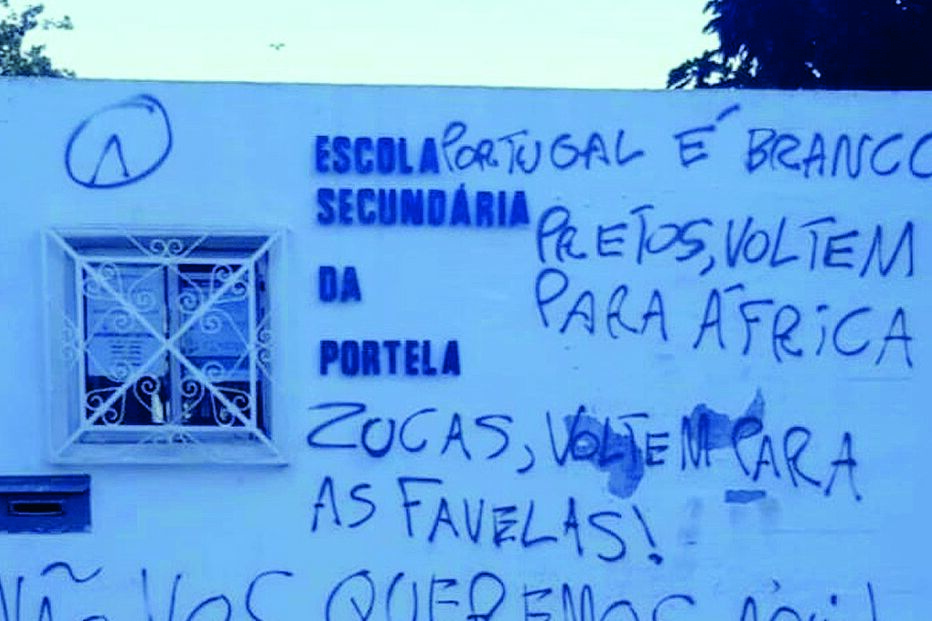 ESCOLA
SECUNDÁRIA
DA
PORTELA
PORTUGAL É BRANCO
PRETOS, VOLTEM
PARA ÁFRICA
ZUCAS, VOLTEM PARA
AS FAVELAS!
NÃO VOS QUEREMOS AQUI!